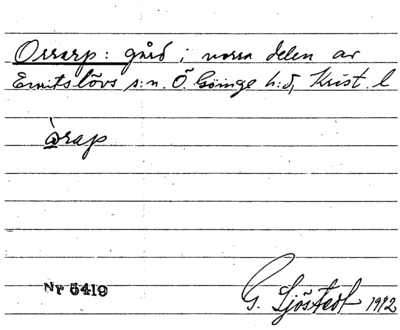 Orrarp: gård i norra delen av
Emitslövs s:n. Ö. Göinge h:d, Krist. l
òrap
Nr 5419 G. Sjöstedt 1912